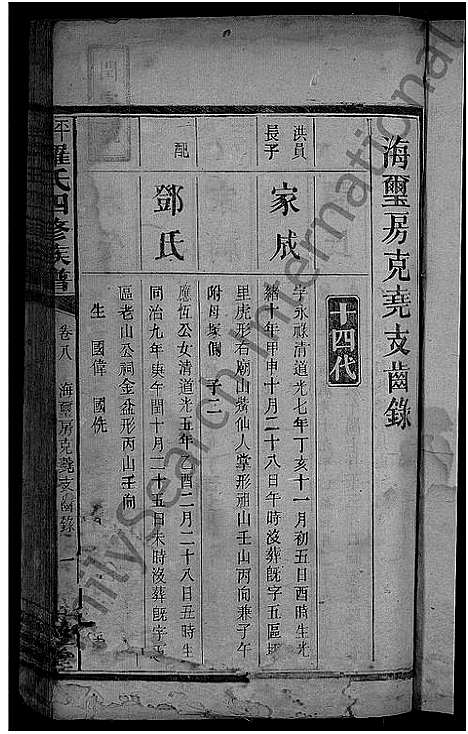 海璽房克堯支齒錄
十四代
洪員
長子
家成
字永祿清道光七年丁亥十一月初五日酉時生光
緒十年甲申十月二十八日午時沒葬旣字五區坪
里虎形右廟山紫仙人掌形祖山壬山丙向兼子午
附母塚側 子二
配
鄧氏
應恆公女清道光五年乙酉二月二十八日丑時生
同治九年庚午閏十月二十五日未時沒葬旣字五
區老山公祠金盆形丙山壬向
生 國偉 國侁
平 羅氏四修族譜
卷八 海璽房克堯支齒錄 一
FamilySearch International